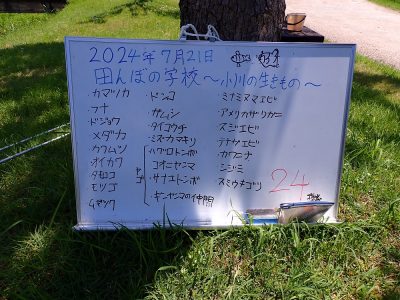 2024年7月21日
田んぼの学校～小川の生きもの～
カマツカ
フナ
ドジョウ
メダカ
カワムツ
オイカワ
タモロコ
モツゴ
ムギツク
・ドンコ
・ガムシ
・タイコウチ
・ミズカマキリ
ヤゴ
・ハグロトンボ
・コオニヤンマ
・サナエトンボ
・ギンヤンマの仲間
・ミナミヌマエビ
・アメリカザリガニ
・スジエビ
・テナガエビ
・カワニナ
・シジミ
・スミウキゴリ
24